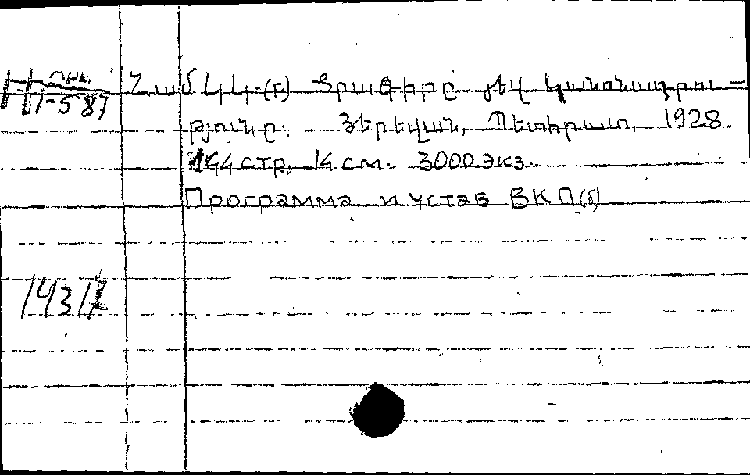 II-587
ՀամԿԿ(բ) Ծրագիրը յեվ կանոնադրու-
թյունը. Յերեվան, Պետհրատ, 1928.
144 стр. 14 см. 3000 экз.
Программа и устав ВКП(б)